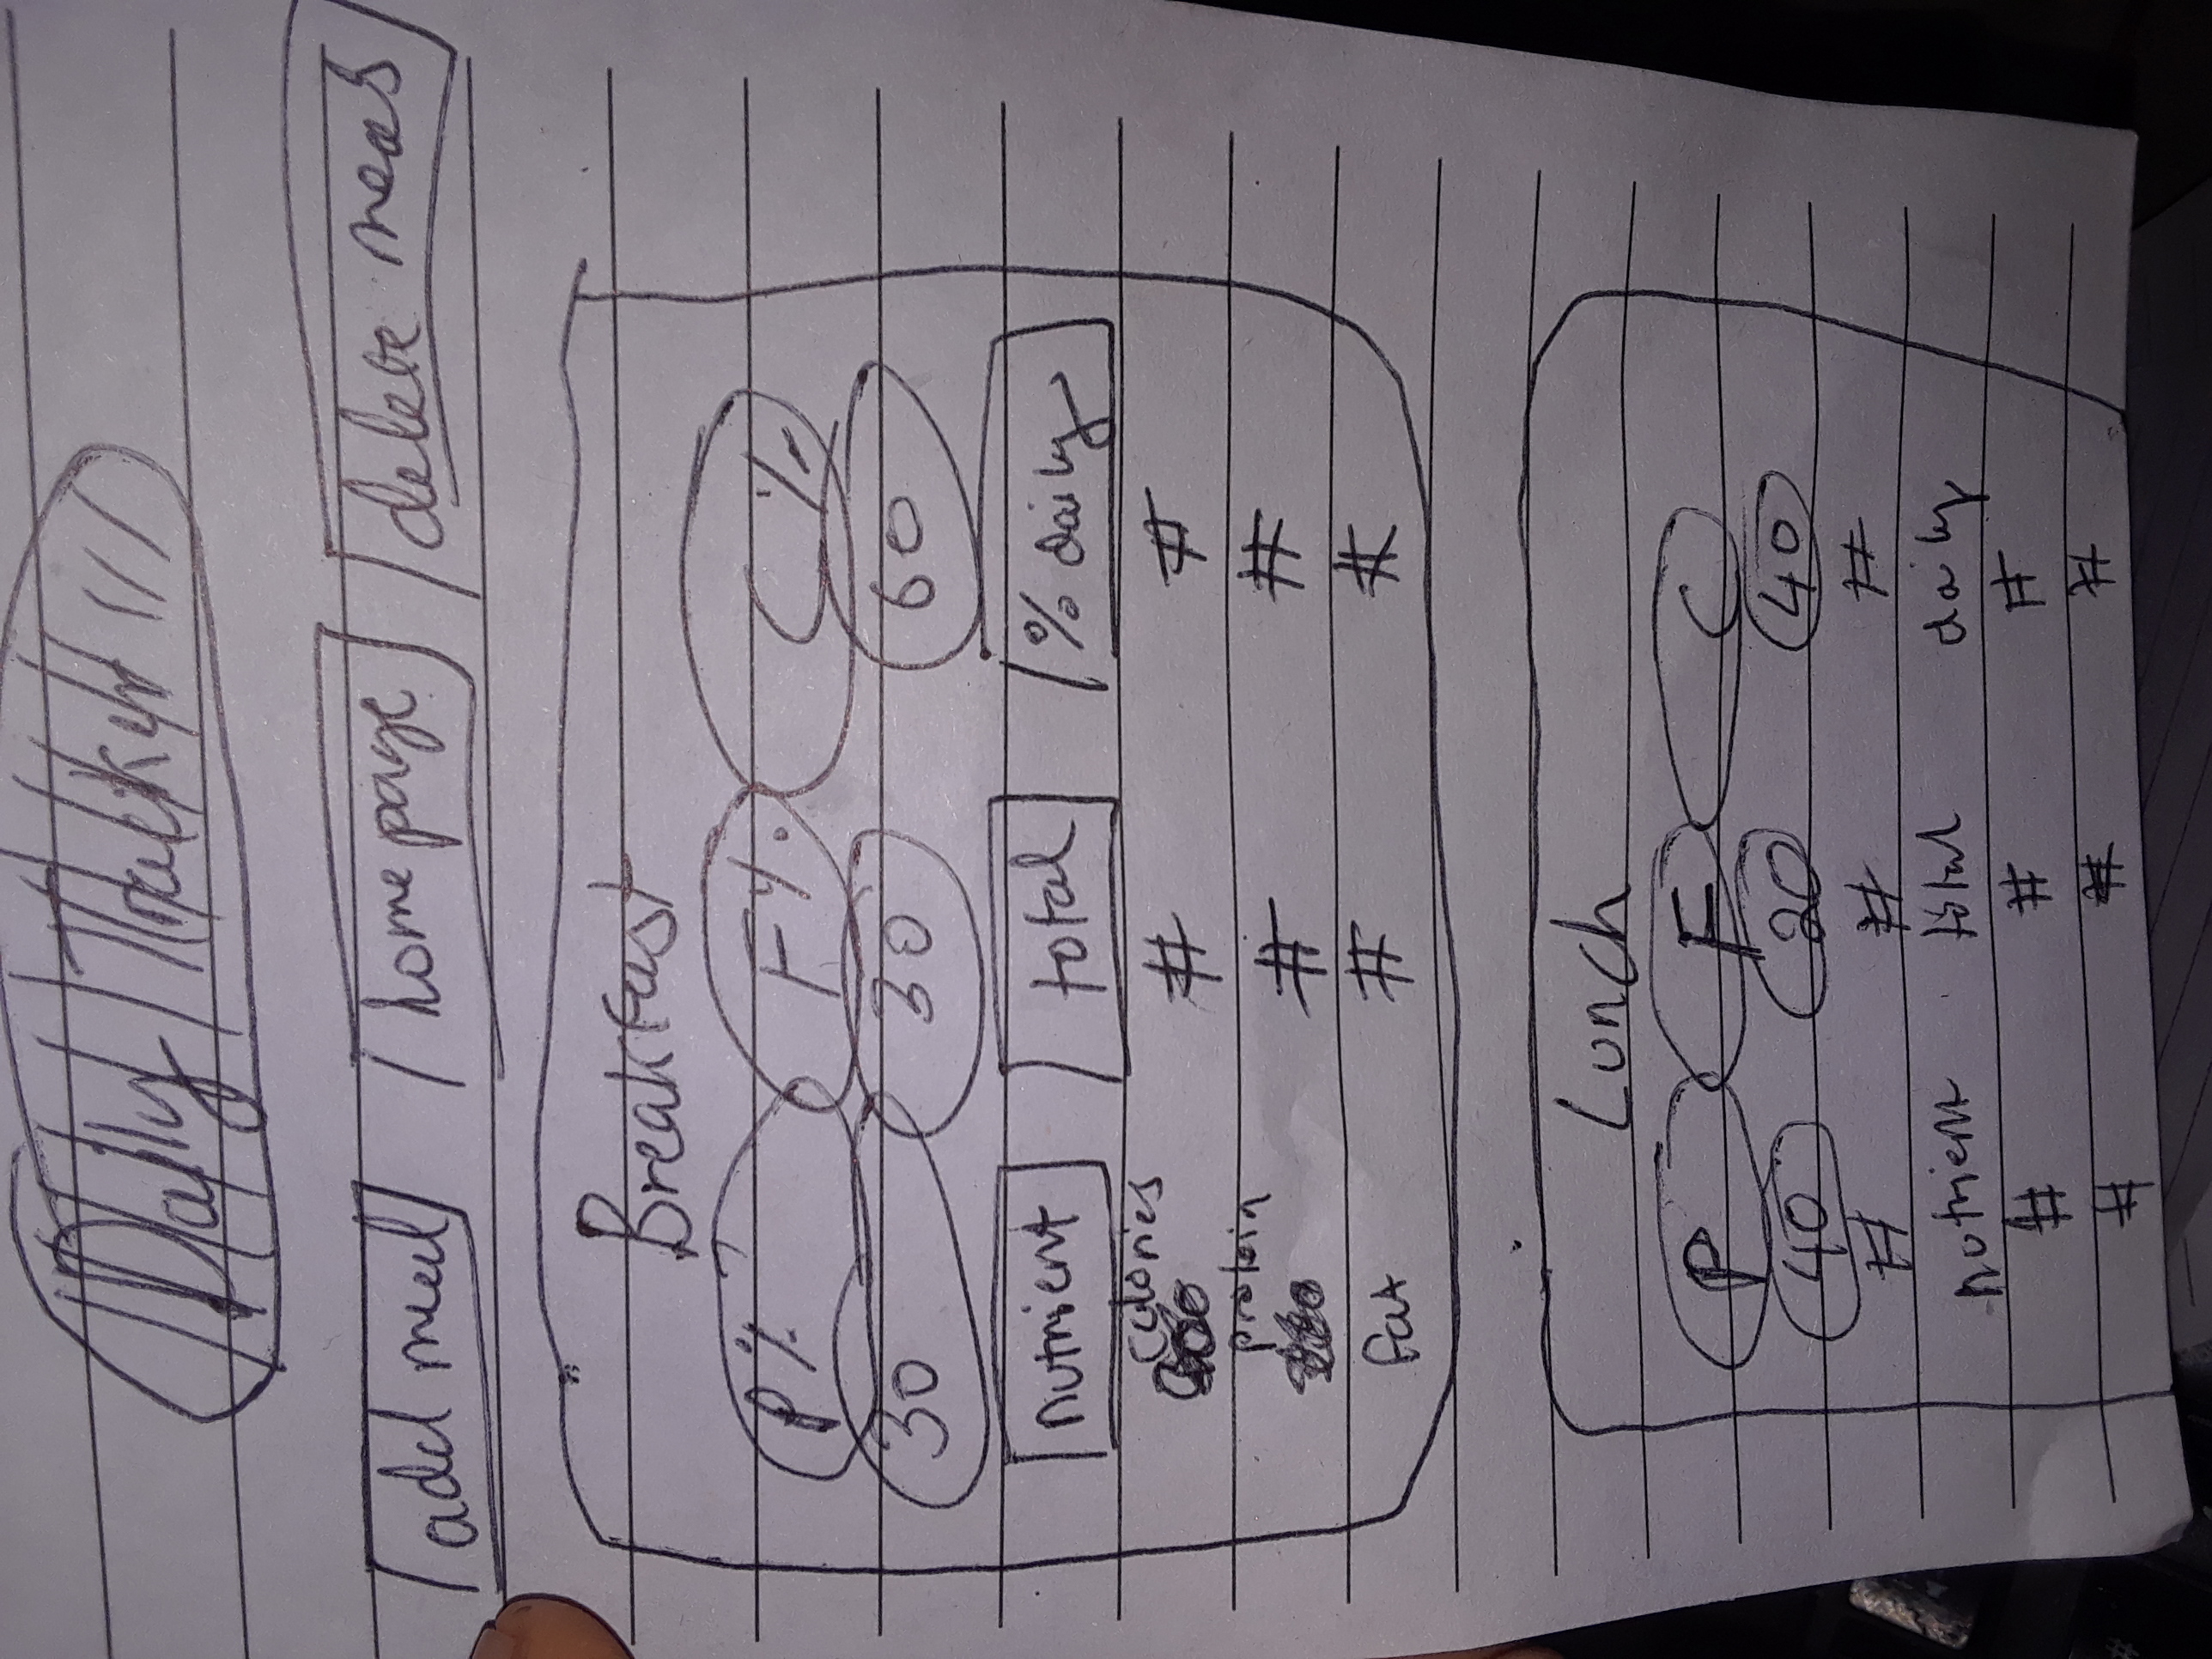 Daily Tracker
add meal home page delete meals
Breakfast
P% F% C%
30 30 60
nutrient total % daily
calories # #
protein # #
fat # #
Lunch
P F C
40 20 40
# # #
nutrient total daily
# # #
# # #